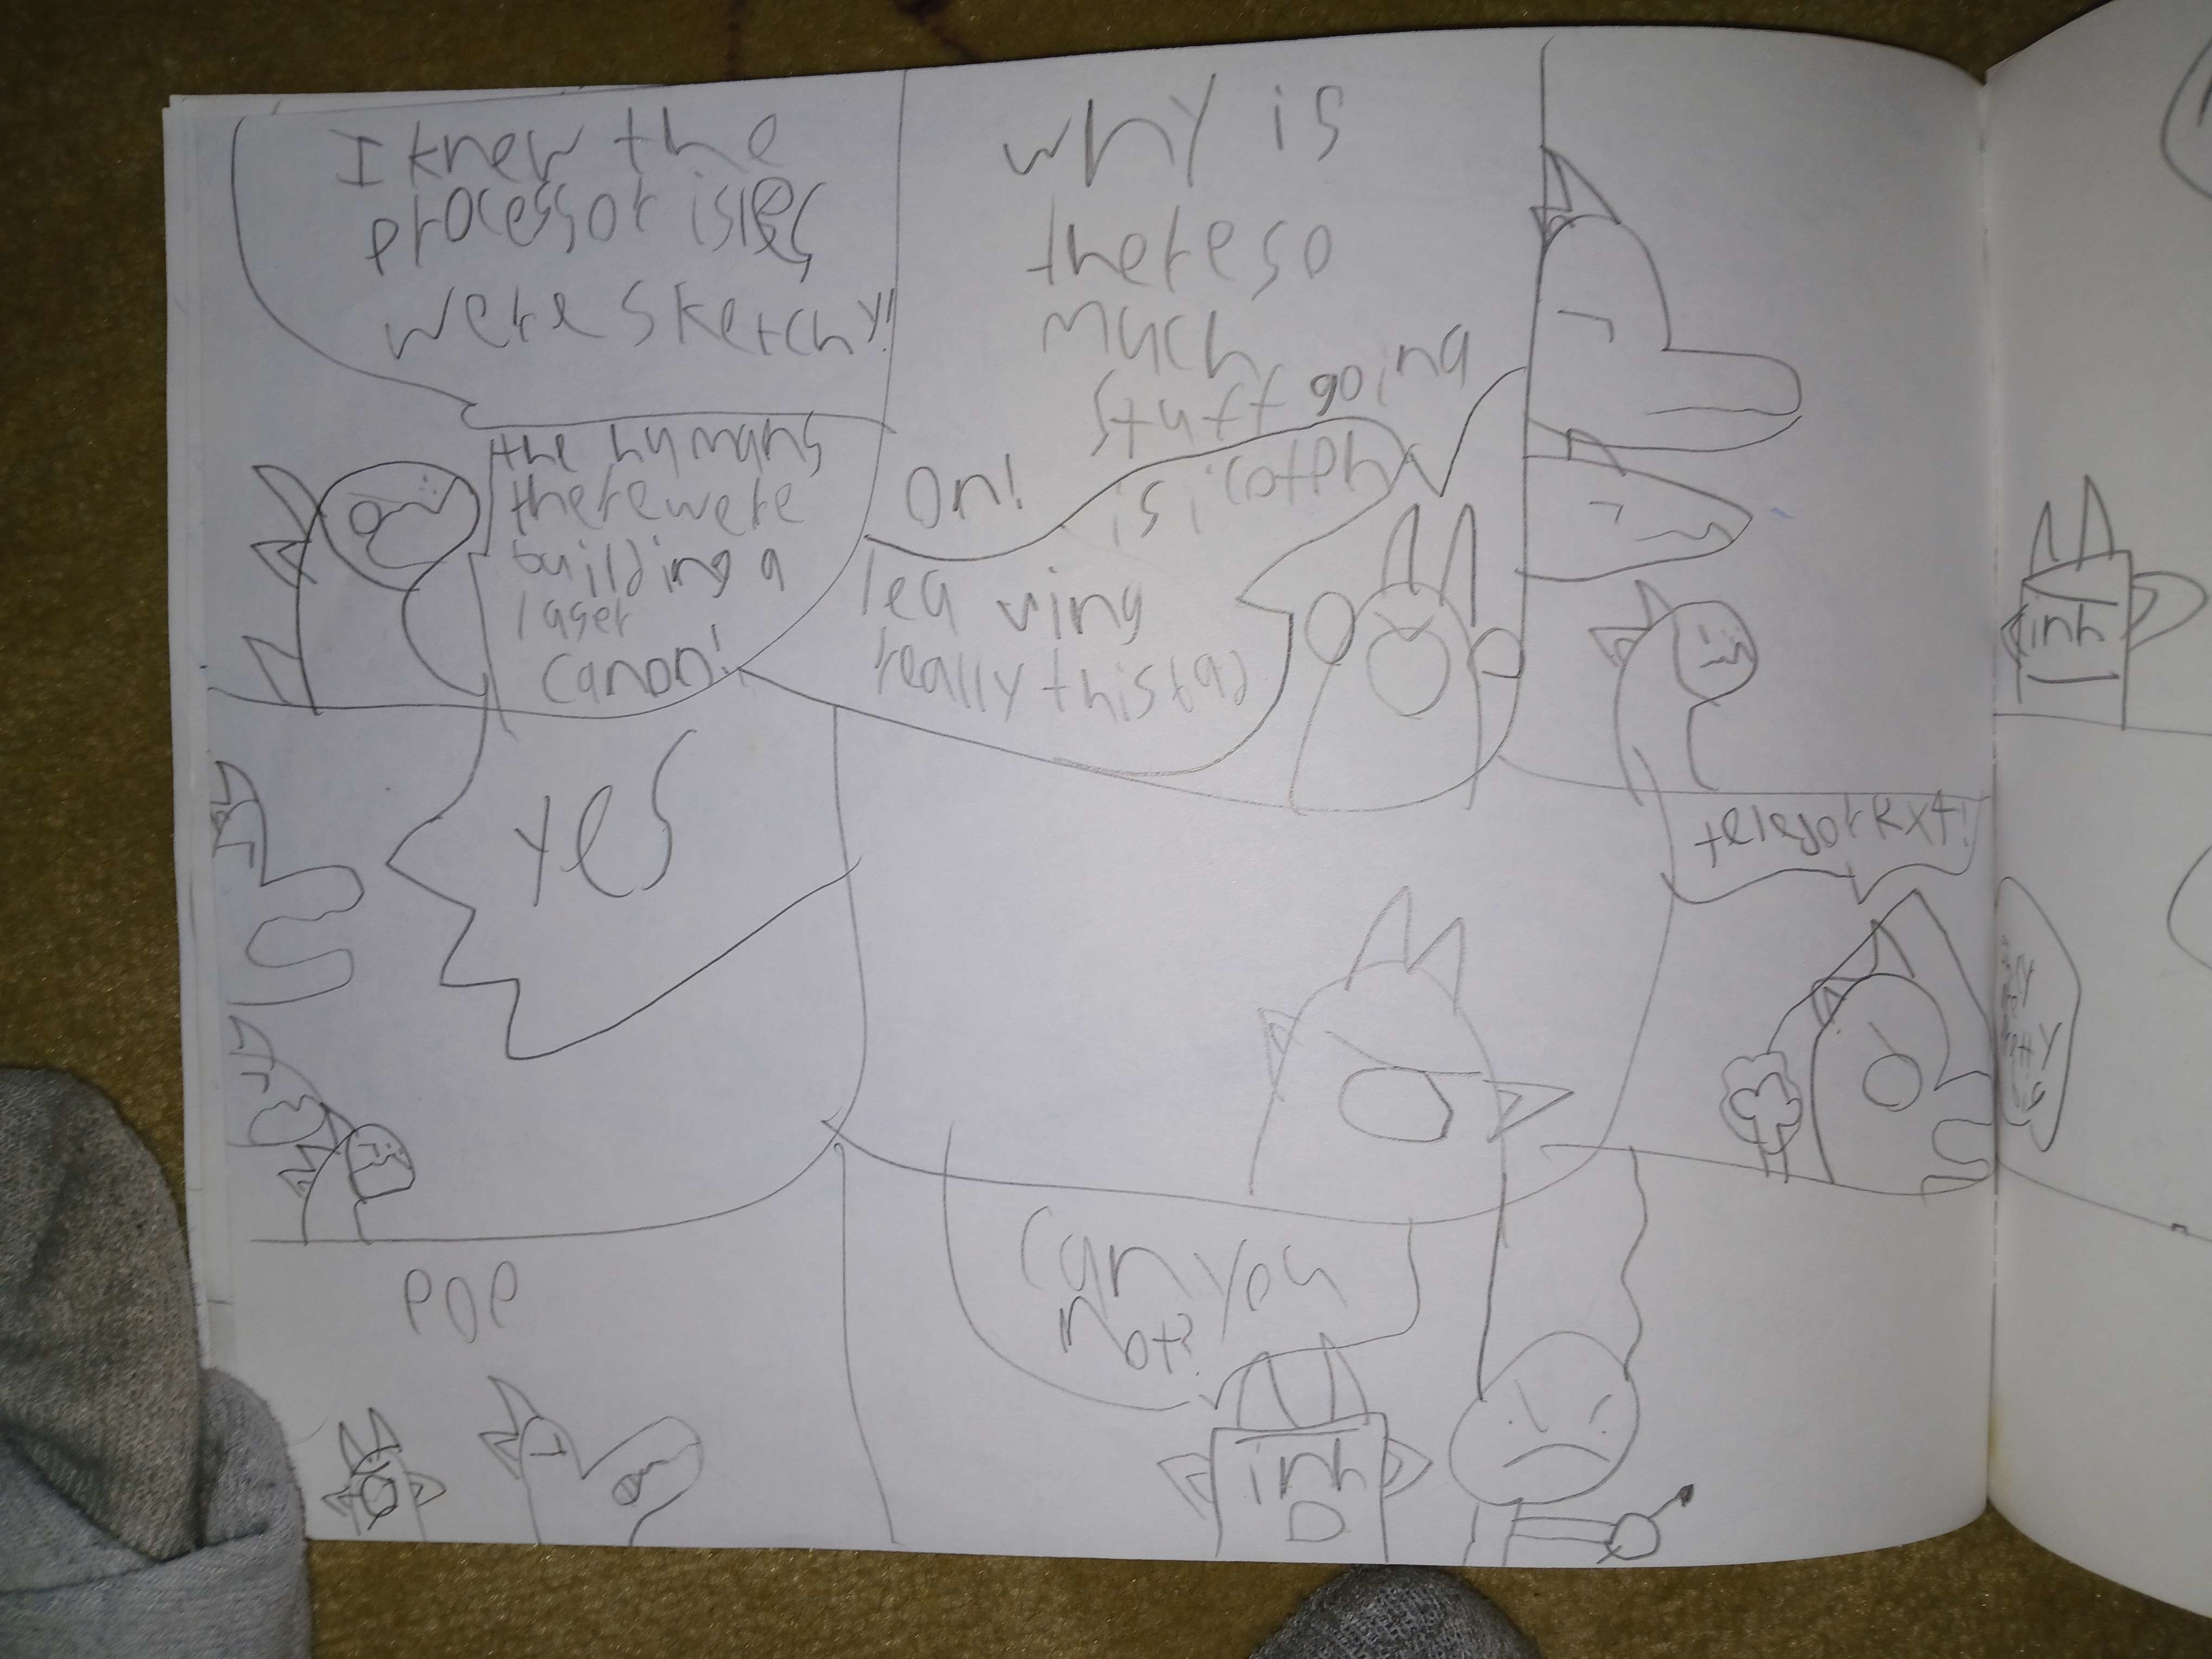 I knew the
processor isles
were sketchy!
the humans
there were
building a
laser
canon!
why is
there so
much
stuff going
on!
is
leaving
really this
yes
can you
not?
inh
pop
inh